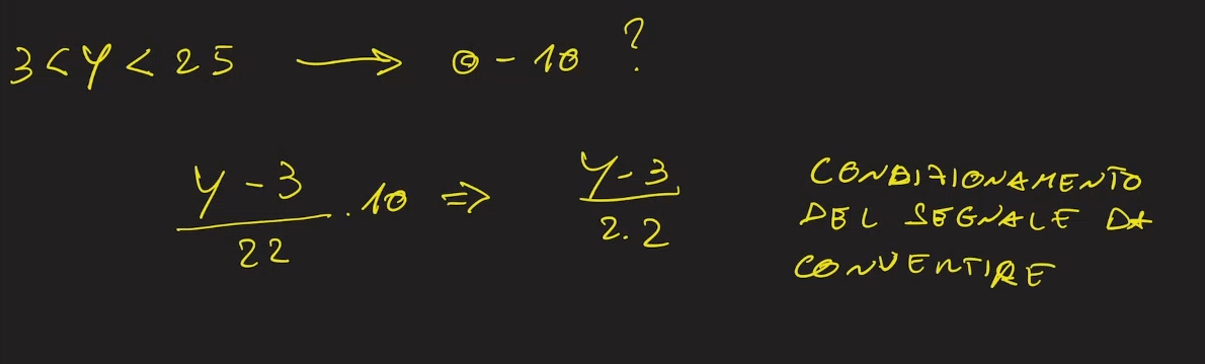 3 < y < 25 → 0 - 10 ?
y - 3 / 22 . 10 ⇒ y - 3 / 2.2
CONDIZIONAMENTO
DEL SEGNALE DA
CONVERTIRE